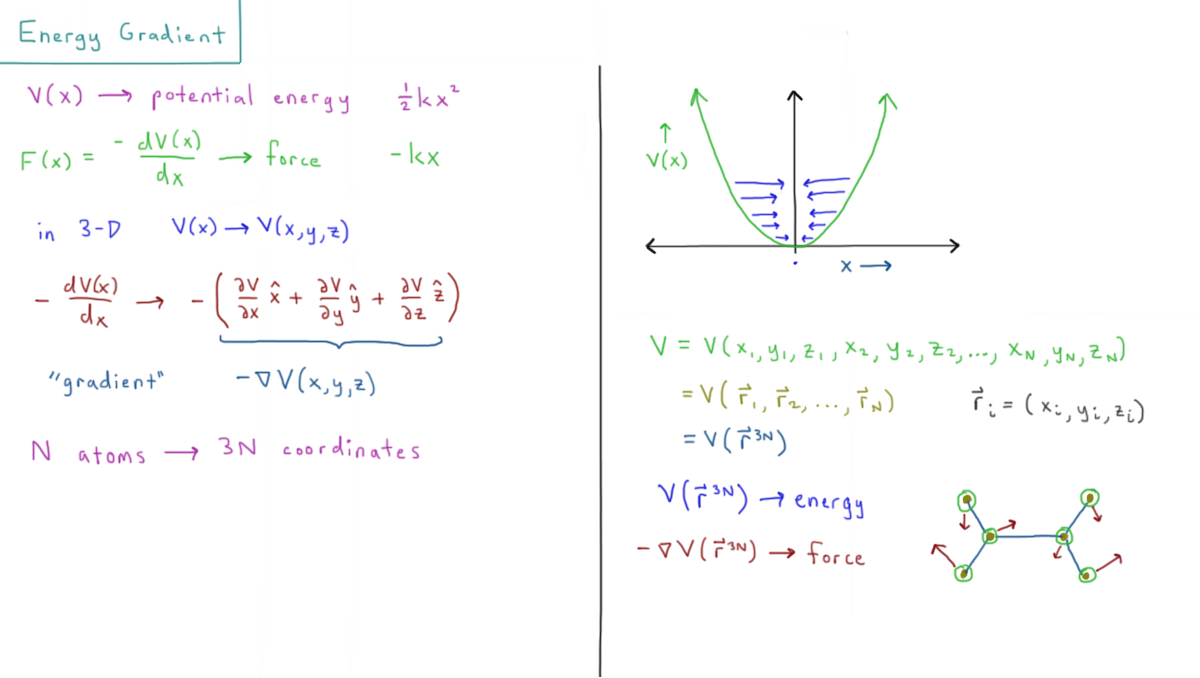 Energy Gradient
V(x) → potential energy ½kx²
F(x) = - dV(x)/dx → force -kx
in 3-D V(x) → V(x,y,z)
- dV(x)/dx → - ( ∂V/∂x x̂ + ∂V/∂y ŷ + ∂V/∂z ẑ )
"gradient" -∇V(x,y,z)
N atoms → 3N coordinates
↑
V(x)
x →
V = V(x₁, y₁, z₁, x₂, y₂, z₂, ..., x_N, y_N, z_N)
= V(r⃗₁, r⃗₂, ..., r⃗_N) r⃗ᵢ = (xᵢ, yᵢ, zᵢ)
= V(r⃗³ᴺ)
V(r⃗³ᴺ) → energy
-∇V(r⃗³ᴺ) → force